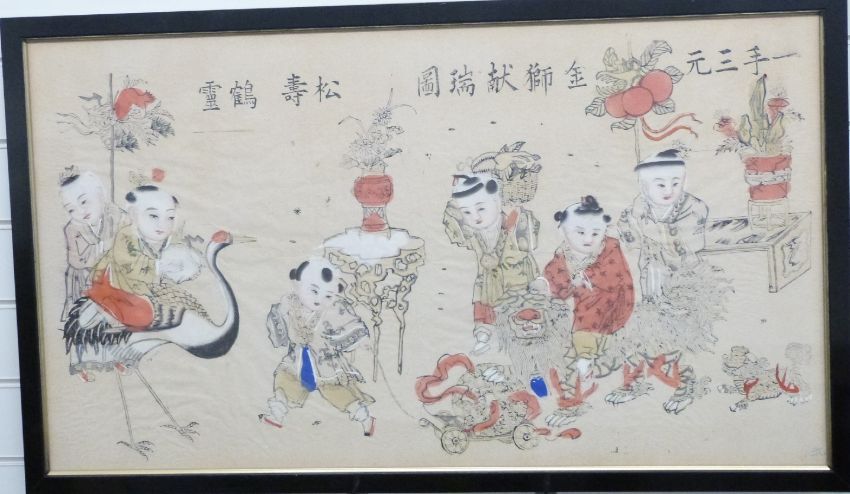 一手三元
金獅献瑞圖
松壽鶴靈